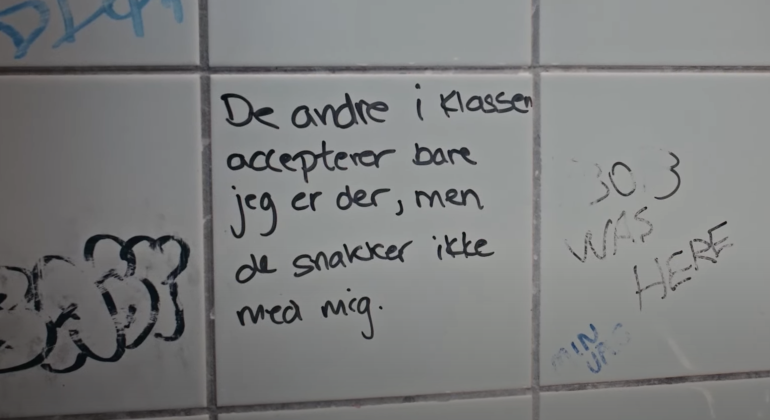 De andre i klassen
accepterer bare
jeg er der, men
de snakker ikke
med mig.
30.3
WAS
HERE